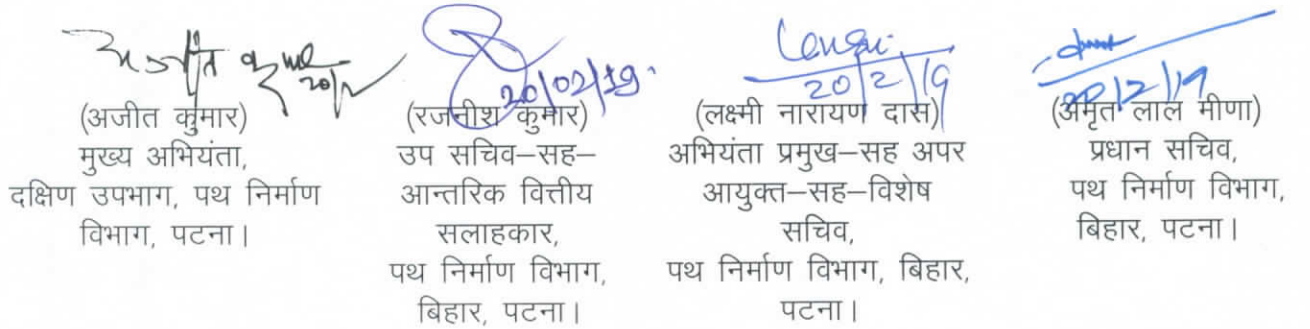 अजीत कुमार 20/2
20/02/19.
20/2/19
20/2/19
(अजीत कुमार)
मुख्य अभियंता,
दक्षिण उपभाग, पथ निर्माण
विभाग, पटना।
(रजनीश कुमार)
उप सचिव–सह–
आन्तरिक वित्तीय
सलाहकार,
पथ निर्माण विभाग,
बिहार, पटना।
(लक्ष्मी नारायण दास)
अभियंता प्रमुख–सह अपर
आयुक्त–सह–विशेष
सचिव,
पथ निर्माण विभाग, बिहार,
पटना।
(अमृत लाल मीणा)
प्रधान सचिव,
पथ निर्माण विभाग,
बिहार, पटना।